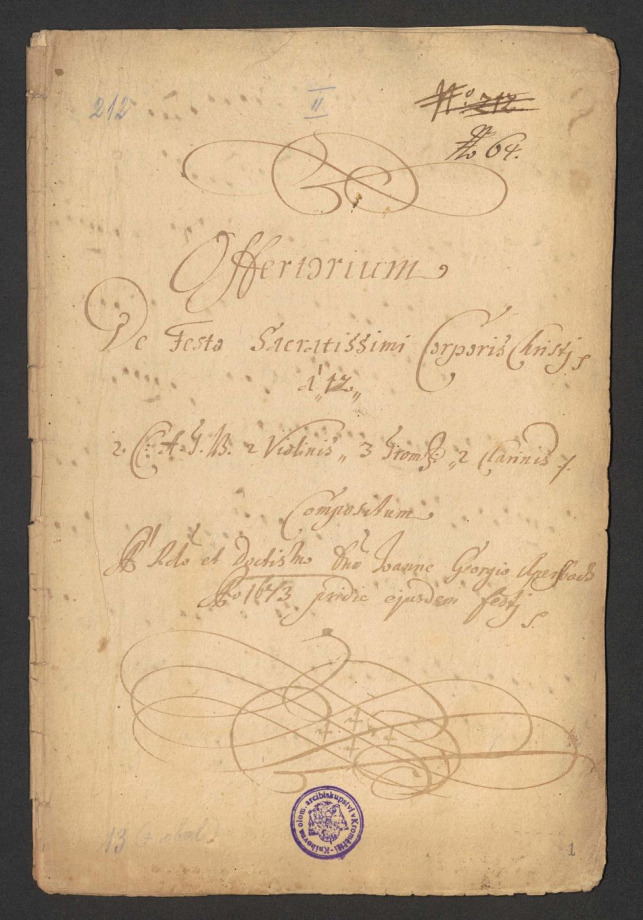 212
II
No. 212
No 64.
Offertorium
De Festo Sacratissimi Corporis Christj
a 12
2 C: A. T. B. 2 Violinis 3 Tromb: 2 Clarinis
Compositum
A Rdo et Dno Joanne Georgio
Ao 1673 pridie ejusdem festj
Knihovna olom. arcibiskupství v Kroměříži
13
1